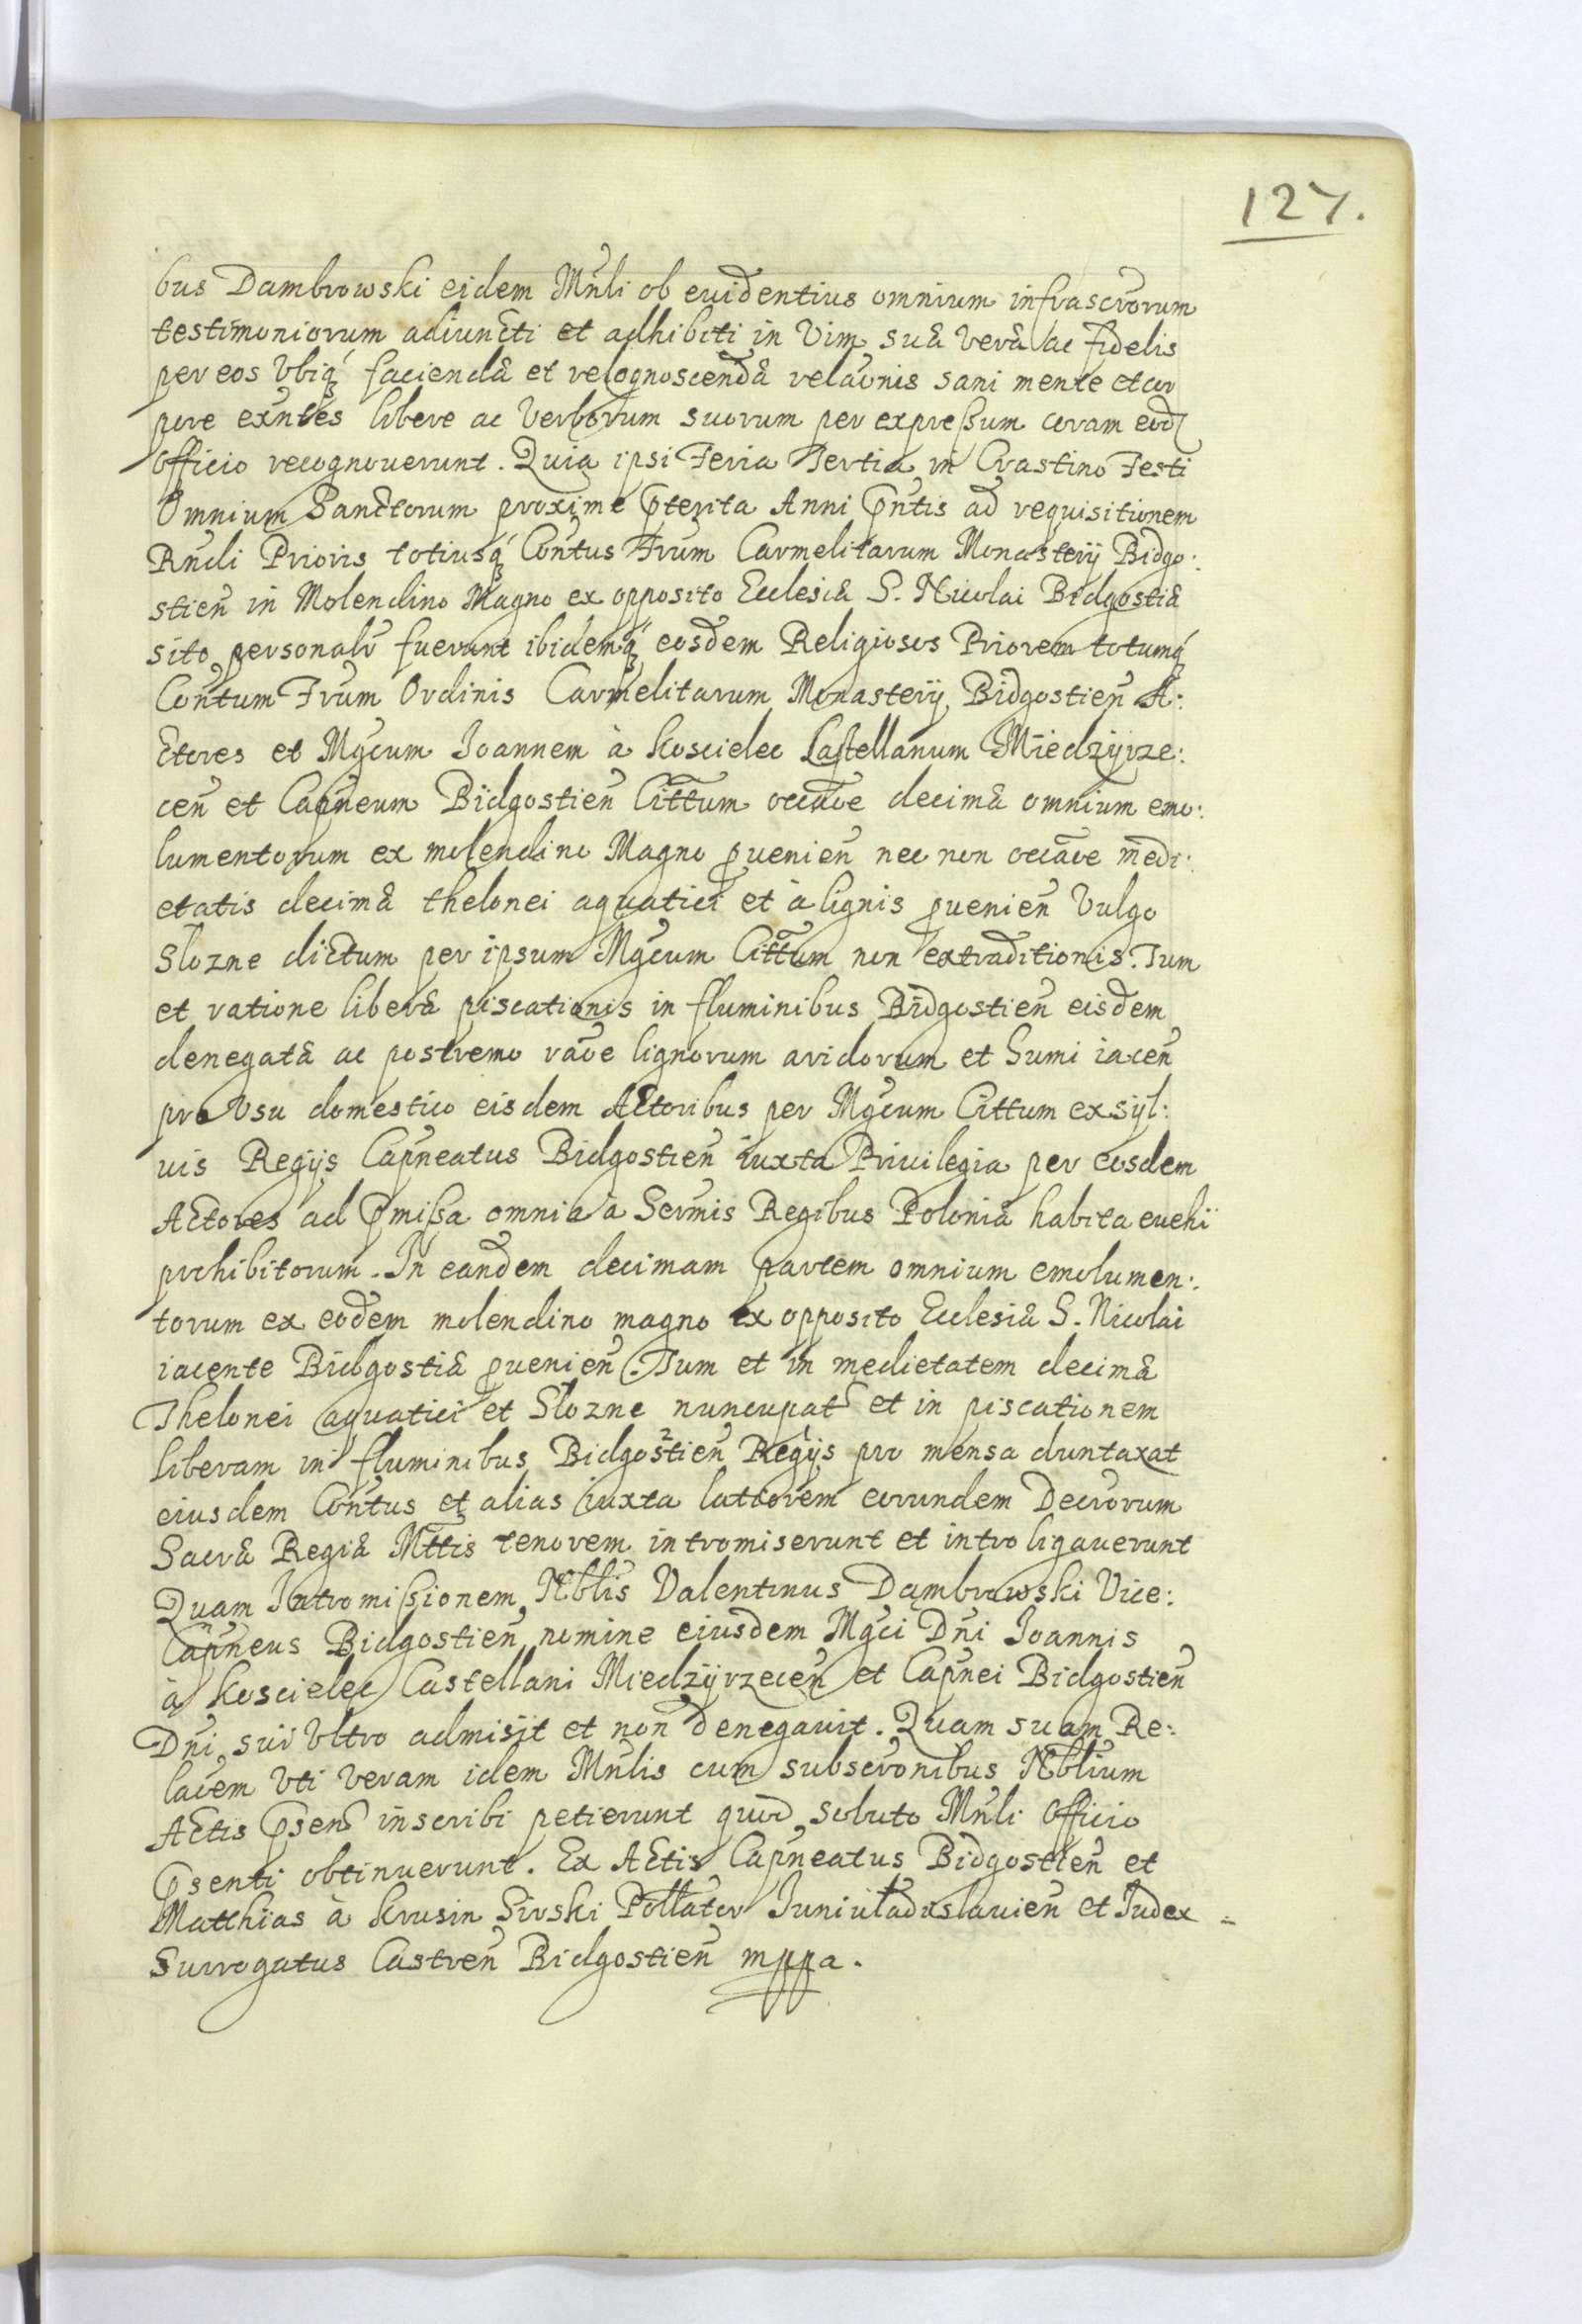 127.
bus Dambrowski eidem Mnli ob euidentius omnium infrascrorum
testimoniorum adiuncti et adhibiti in Vim suæ veræ ac fidelis
per eos Vbiq́ faciendæ et recognoscendæ relaōnis sani mente et cor
pore exn̄tes libere ac Verborum suorum per expreßum coram eod
Officio recognouerunt. Quia ipsi Feria Tertia in Crastino Festi
Omnium Sanctorum proxime p̃terita Anni p̃ntis ad requisitionem
Rndi Prioris totiusq́ Conūtus Frum Carmelitarum Monasterij Bidgo:
stien̄ in Molendino Magno ex opposito Ecclesiæ S. Nicolai Bidgostiæ
sito personalr fuerunt ibidemq́ eosdem Religiosos Priorem totumq́
Contum Frum Ordinis Carmelitarum Monasterij Bidgostien̄ A:
ctores et Mgcum Joannem à Koscielec Castellanum Miedzÿrze:
cen̄ et Capneum Bidgostien̄ Cittum occaōe decimæ omnium emo:
lumentorum ex molendino Magno ꝓuenien̄ nec non occaōe medi:
etatis decimæ thelonei aquatici et à lignis ꝓuenien̄ Vulgo
Slozne dictum per ipsum Mgcum Cittum non extraditionis. Tum
et ratione liberæ piscationis in fluminibus Bidgostien̄ eisdem
denegatæ ac postremo raōe lignorum aridorum et humi iacen̄
pro Vsu domestico eisdem Actoribus per Mgcum Cittum ex sÿl:
uis Regijs Capneatus Bidgostien̄ iuxta Priuilegia per eosdem
Actores ad p̃mißa omnia à Sermis Regibus Poloniæ habita euehi
prohibitorum. In eandem decimam partem omnium emolumen:
torum ex eodem molendino magno ex opposito Ecclesiæ S. Nicolai
iacente Bidgostiæ ꝓuenien̄. Tum et in medietatem decimæ
Thelonei aquatici et Slozne nuncupat et in piscationem
liberam in fluminibus Bidgostien̄ Regijs pro mensa duntaxat
eiusdem Contus et alias iuxta latiorem eorundem Decrorum
Sacræ Regiæ Mttis tenorem intromiserunt et introligauerunt
Quam Intromißionem Nblis Valentinus Dąmbrowski Vice:
Capneus Bidgostien̄ nomine eiusdem Mgci Dni Joannis
à Koscielec Castellani Miedzÿrzecen̄ et Capnei Bidgostien̄
Dni sui Vltro admisit et non denegauit. Quam suam Re:
laōem Vti Veram idem Mnlis cum subscronibus Nblium
Actis p̃sen inscribi petierunt quod soluto Mnli Officio
p̃senti obtinuerunt. Ex Actis Capneatus Bidgostien̄ et
Matthias à Krusin Sirski Juniuladislauien̄ et Judex
Surrogatus Castren̄ Bidgostien̄ mppa.